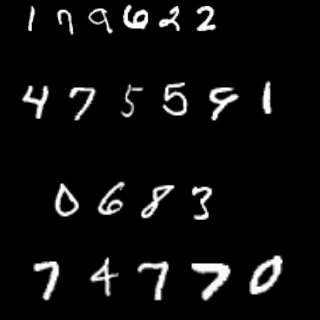 179622
475591
0683
74770